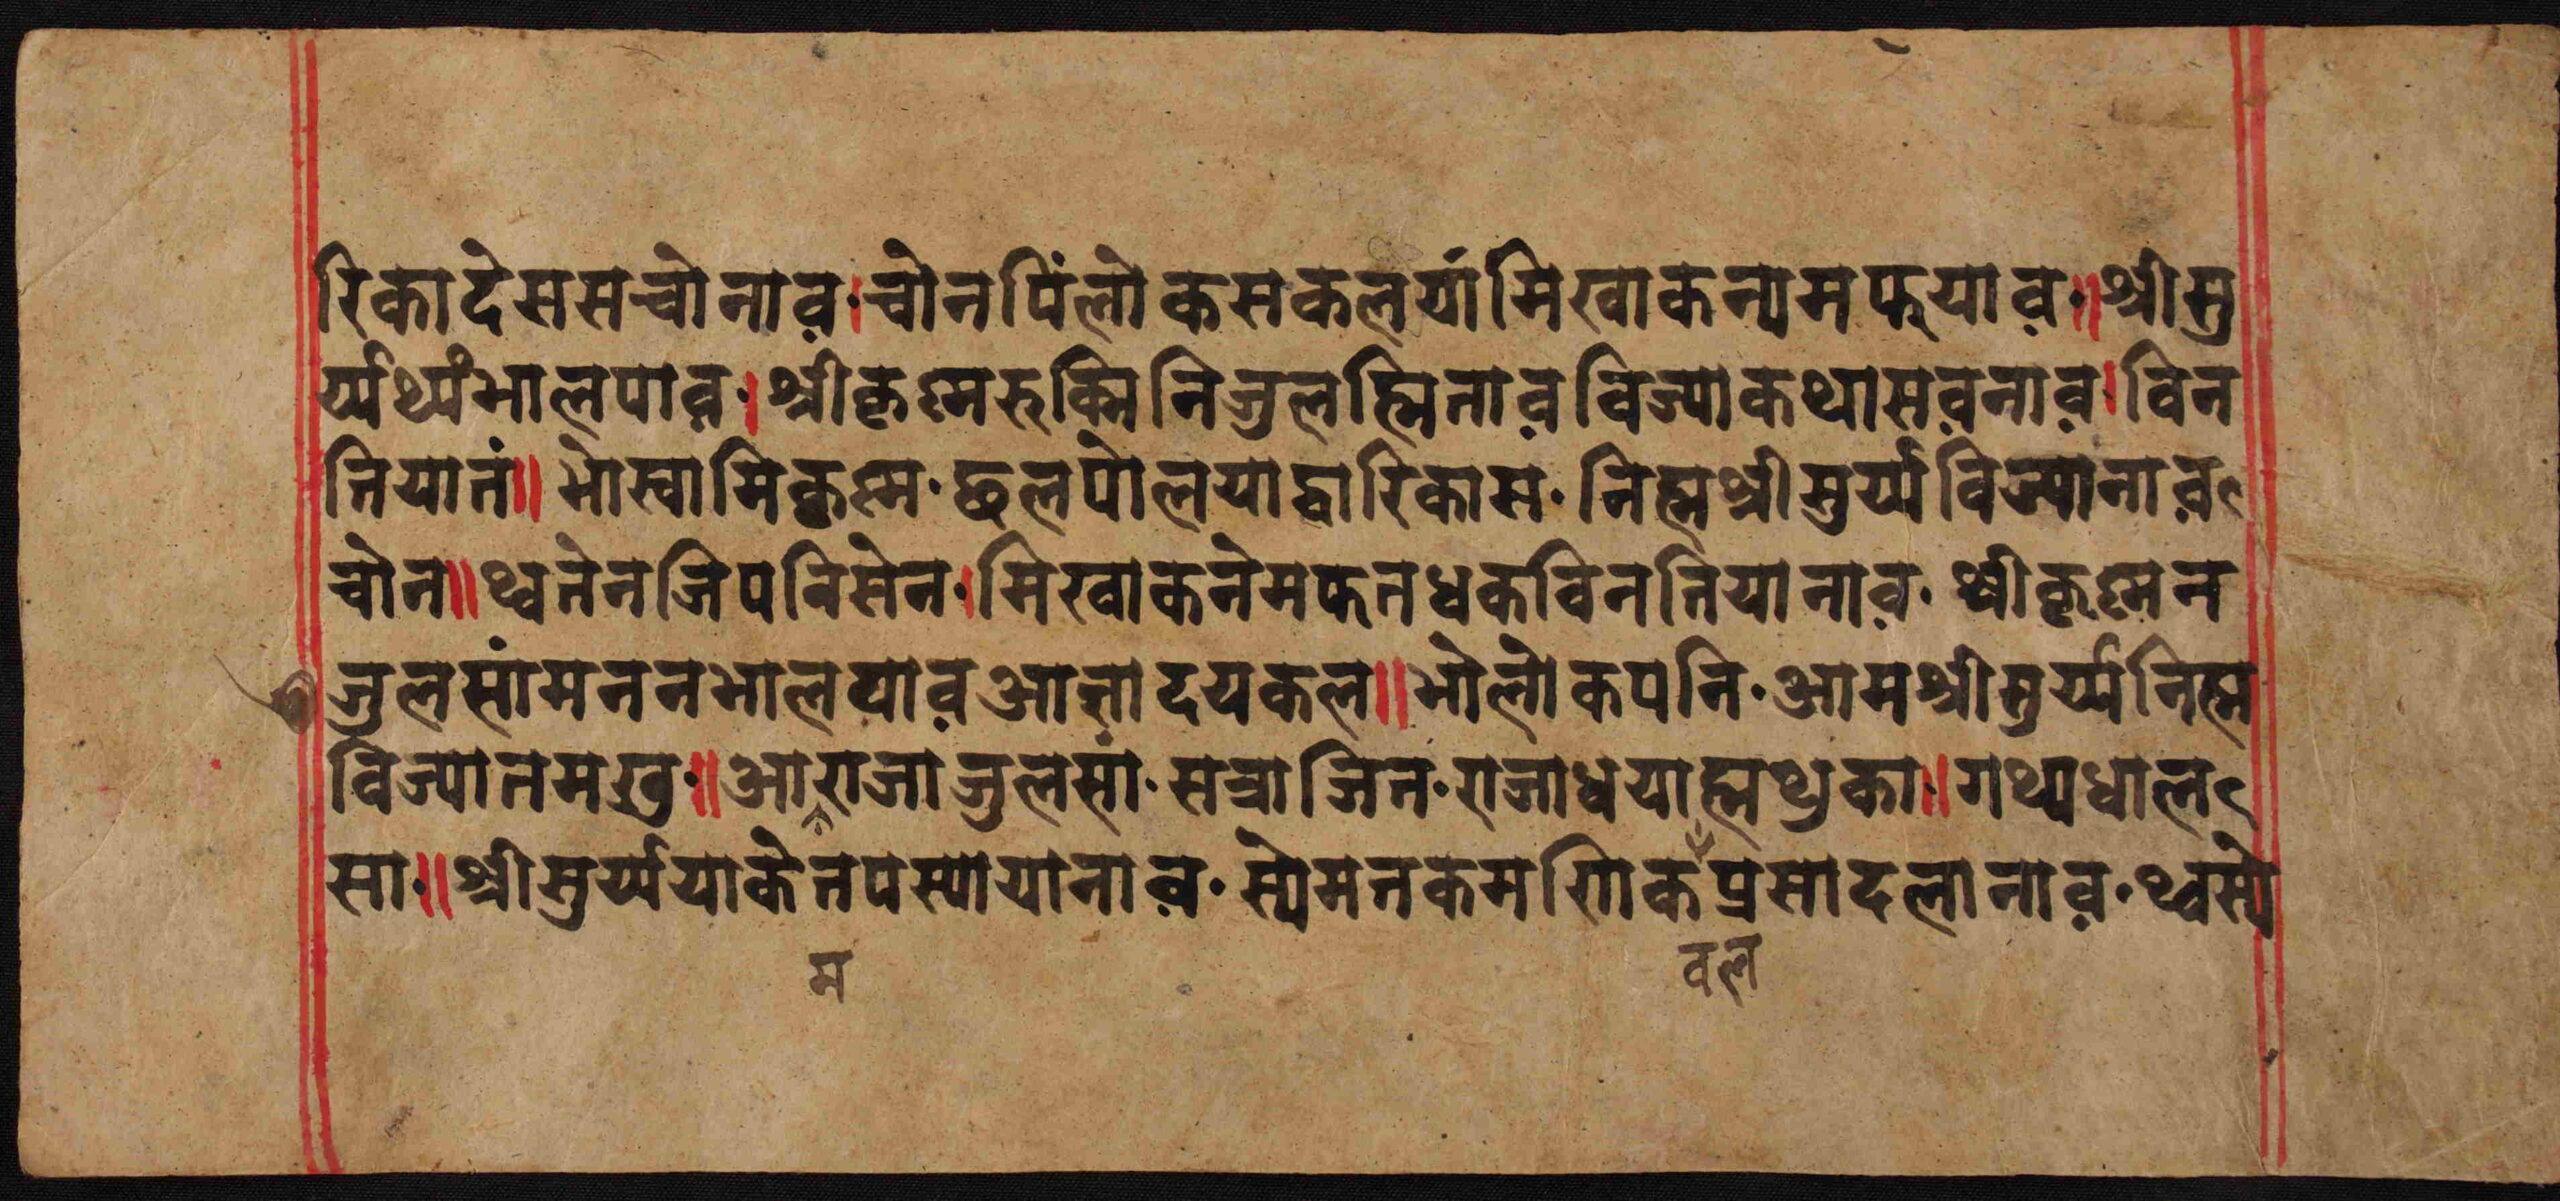 रिकादेससचोनाव़।चोनपिंलोकसकलयांमिखाकन्यमफयाव़॥श्रीसु
र्य्यथ्यंभालपाव़।श्रीकृष्मरुक्मिनिजुलह्मितावविज्याकथासव़नाव़।विन
तियातं॥भोस्वामिकृष्म·छलपोलयाद्वारिकास·निह्मश्रीसुर्य्यविज्यानाव़
चोन॥थ्वतेनजिपविसेन·।मिखाकनेमफतधकविनतियानाव़·श्रीकृष्मन
जुलसांमननभालपाव़आज्ञादयकल॥भोलोकपनि·आमश्रीसुर्य्यनिह्म
विज्यातमखु·॥आराजाजुलसां·सत्राजित·राजाधयाह्मथुका·॥गथ्यधाल
सा·॥श्रीसुर्य्ययाकेतपस्यायानाव़·स्येमनकमणिकप्रसादलानाव़·थ्वस्ये
म
वल